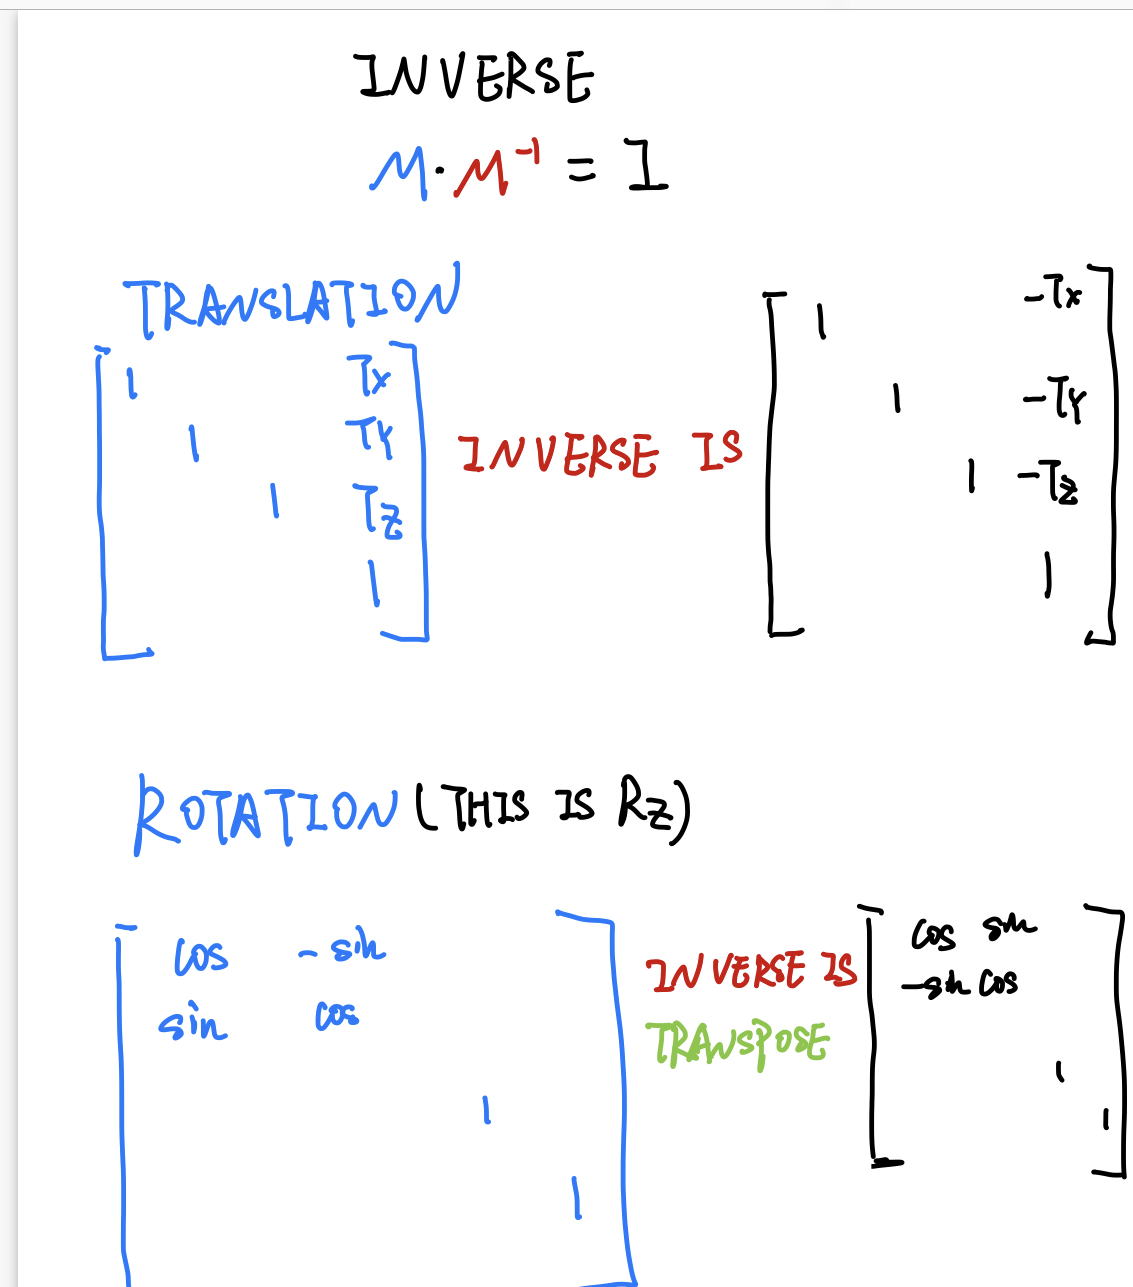 INVERSE
M · M⁻¹ = I
TRANSLATION
1 Tx
1 Ty
1 Tz
1
INVERSE IS
1 -Tx
1 -Ty
1 -Tz
1
ROTATION (THIS IS Rz)
cos -sin
sin cos
1
1
INVERSE IS
TRANSPOSE
cos sin
-sin cos
1
1